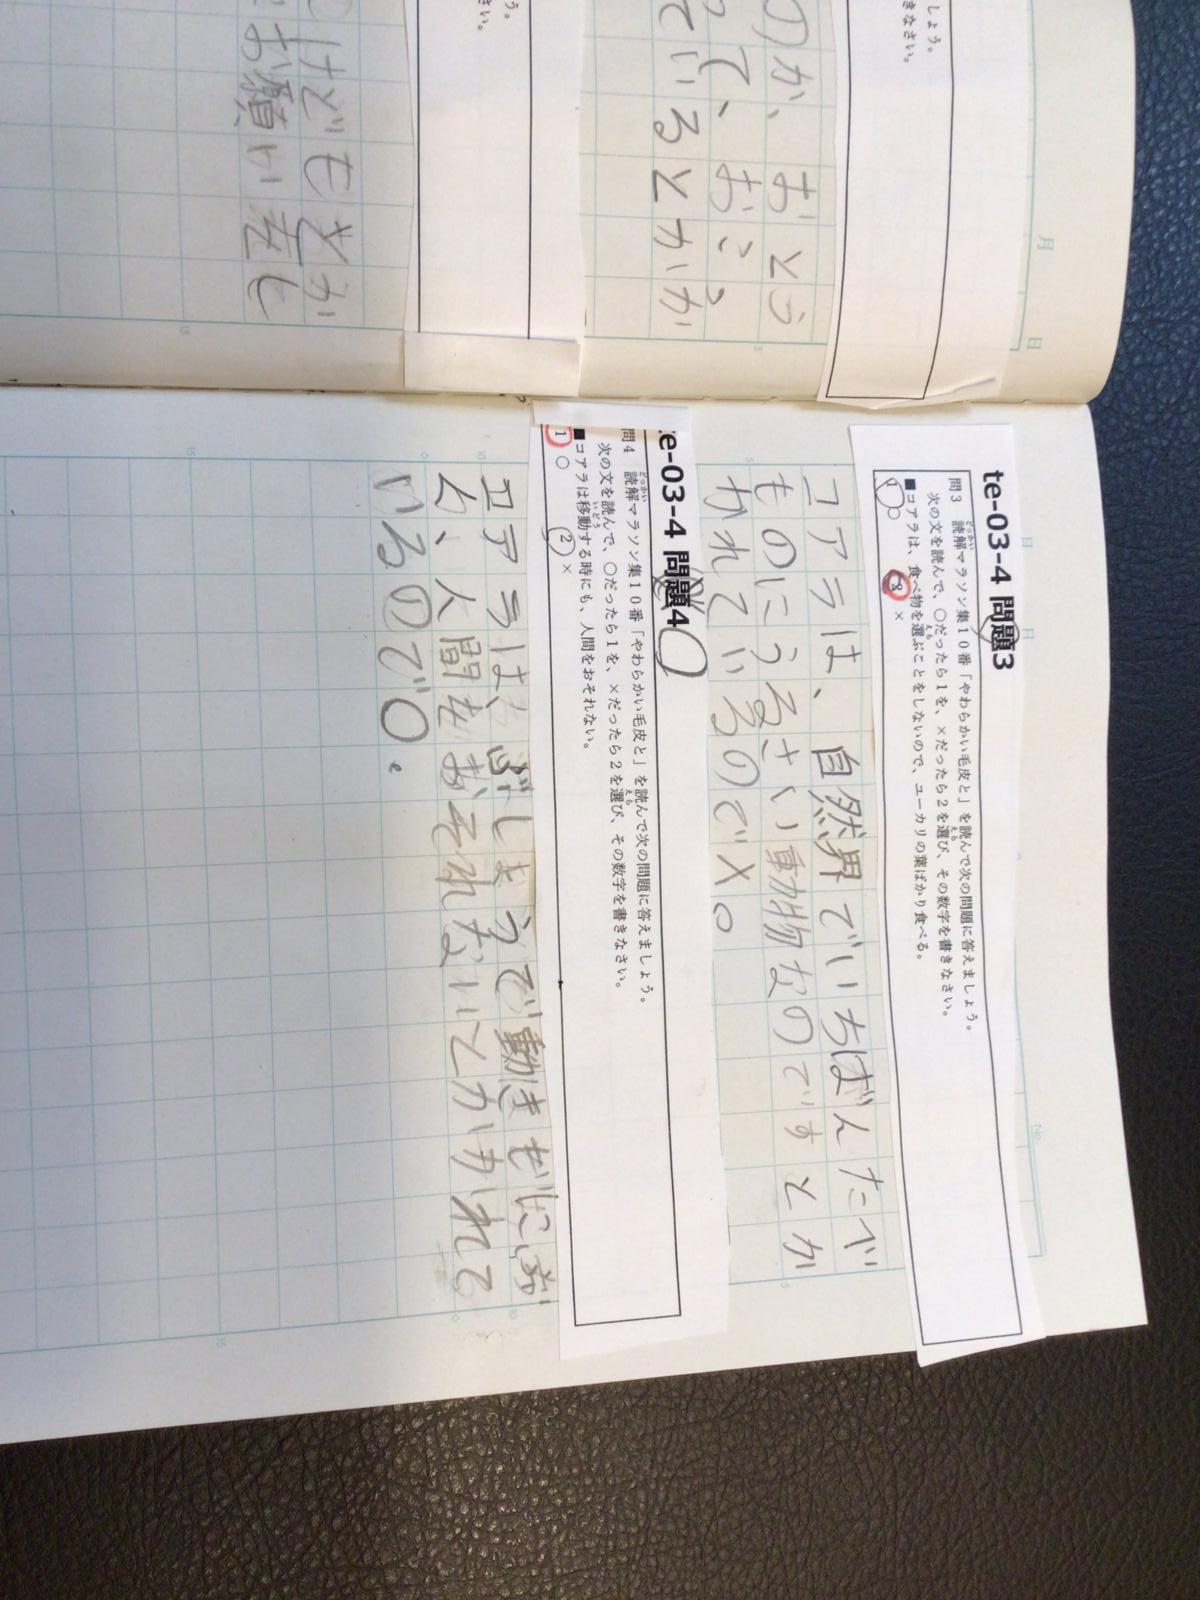 te-03-4 問題3
問3 読解マラソン集10番「やわらかい毛皮と」を読んで次の問題に答えましょう。
次の文を読んで、○だったら1を、×だったら2を選び、その数字を書きなさい。
■コアラは、食べ物を選ぶことをしないので、ユーカリの葉ばかり食べる。
1 ○ 2 ×
コアラは、自然界でいちばんたべ
ものにうるさい動物なのですとか
かれているのでX。
te-03-4 問題4
問4 読解マラソン集10番「やわらかい毛皮と」を読んで次の問題に答えましょう。
次の文を読んで、○だったら1を、×だったら2を選び、その数字を書きなさい。
■コアラは移動する時にも、人間をおそれない。
1 ○ 2 ×
コアラは、ぶしょうで動きもにぶ
く、人間をおそれないとかかれて
いるので○。
しょう。
きなさい。
のか、おとう
って、おこう
ているとかか
う。
さい。
けどもをか
お願いをし
月 日